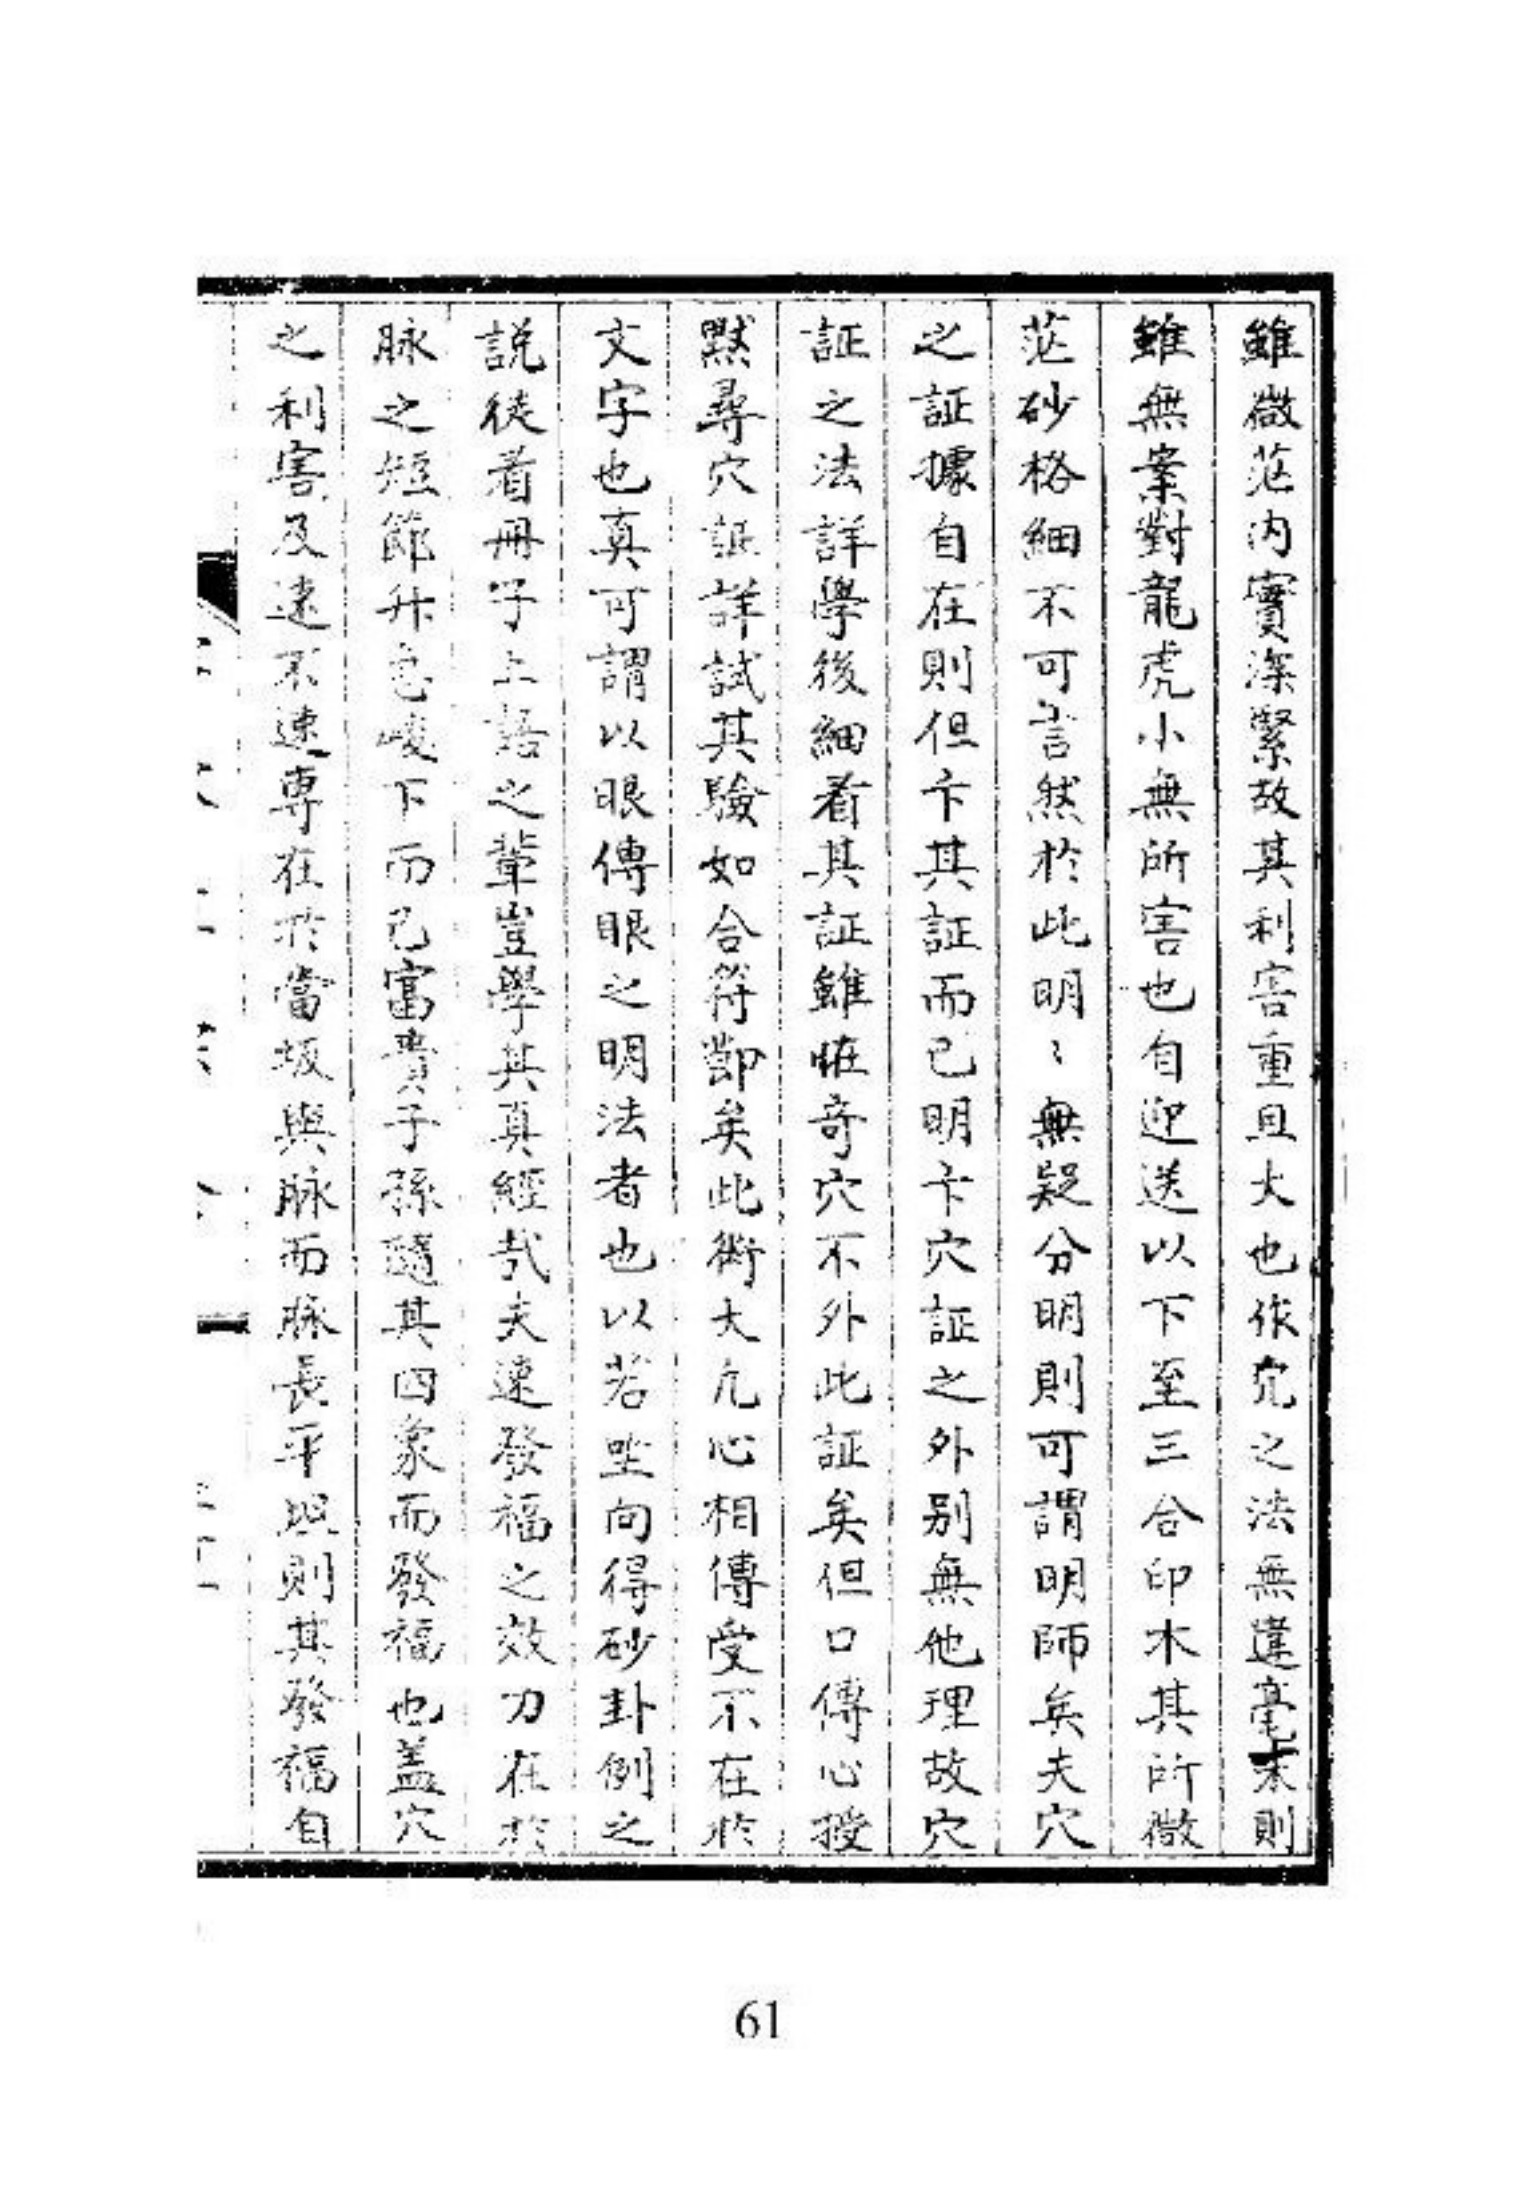 雖微茫内實深緊故其利害重且大也作穴之法無違毫末則
雖無案對龍虎小無所害也自迎送以下至三合印木其所微
茫砂格細不可言然於此明〻無疑分明則可謂明師矣夫穴
之証據自在則但卞其証而已明卞穴証之外別無他理故穴
証之法詳學後細看其証雖怪奇穴不外此証矣但口傳心授
默尋穴証詳試其驗如合符節矣此術大凢心相傳受不在於
文字也真可謂以眼傳眼之明法者也以若坐向得砂卦例之
説徒看冊字上語之輩豈學其真經㢤夫速發福之效力在於
脉之短節升急峻下而已富貴子孫隨其四象而發福也盖穴
之利害及速不速専在於當坂與脉而脉長平則其發福自
61